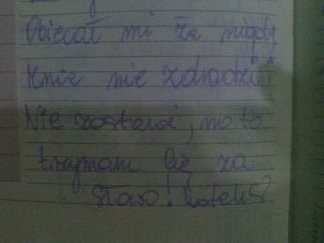 Obiecał mi że nigdy
mnie nie zdradzi!
Nie zostawi, no to
trzymam Cię za
słowo! kotek